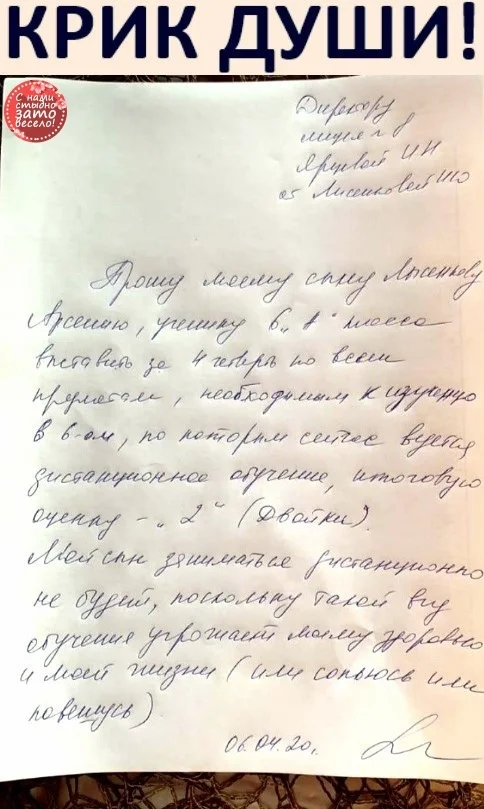 КРИК ДУШИ!
С нами
стыдно
зато
весело!
Директору
лицея № 8
Ярцевой ИН
от Лысенковой МЮ
Прошу моему сыну Лысенкову
Арсению, ученику 6 „А“ класса
выставить за 4 четверть по всем
предметам, необходимым к изучению
в 6-ом, по которым сейчас ведется
дистанционное обучение, итоговую
оценку - „2“ (двойки).
Мой сын заниматься дистанционно
не будет, поскольку такой вид
обучения угрожает моему здоровью
и моей жизни (или сопьюсь или
повешусь)
06.04.20г.